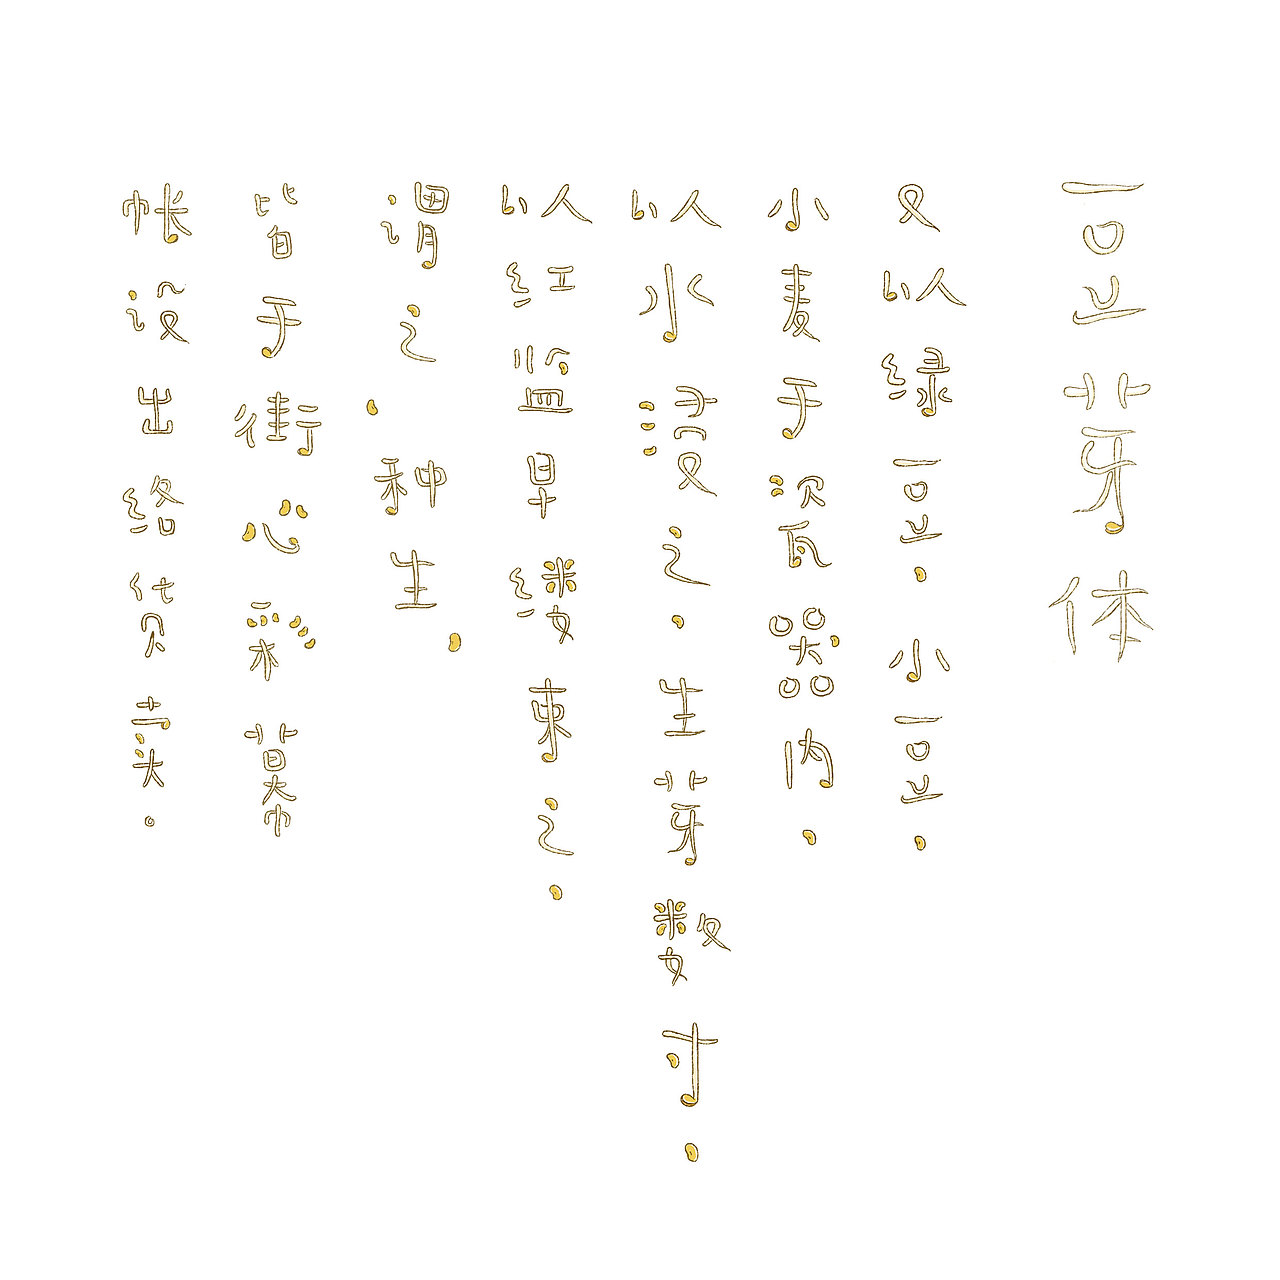 豆芽体
又以绿豆、小豆、
小麦于瓷器内,
以水浸之,生芽数寸,
以红监早缕束之,
谓之“种生”
皆于街心彩幕
帐设出络货卖。